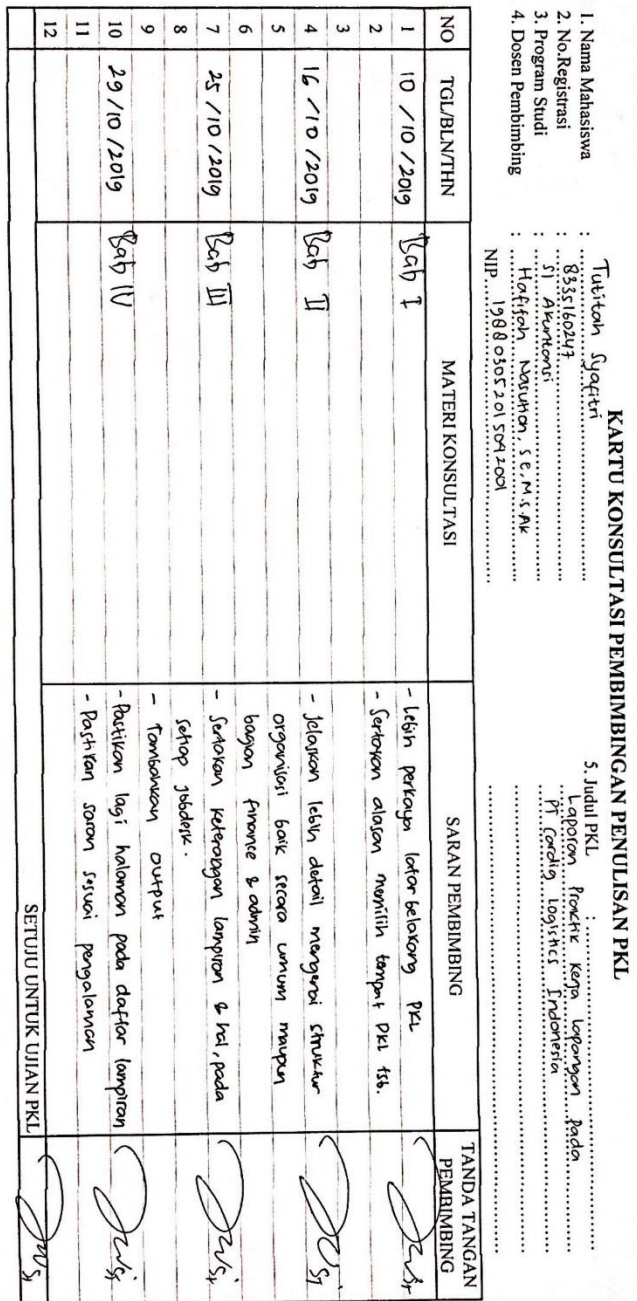 KARTU KONSULTASI PEMBIMBINGAN PENULISAN PKL
1. Nama Mahasiswa : Tutitah Syafitri
2. No.Registrasi : 8335160247
3. Program Studi : S1 Akuntansi
4. Dosen Pembimbing : Hafifah Nasution, S.E, M.S.AK
NIP. 198803052015042001
5. Judul PKL :
Laporan Praktik Kerja Lapangan Pada
PT Cardig Logistics Indonesia
NO TGL/BLN/THN MATERI KONSULTASI SARAN PEMBIMBING TANDA TANGAN PEMBIMBING
1 10/10/2019 Bab I - Lebih perkaya latar belakang PKL
2 - Sertakan alasan memilih tempat PKL tsb.
3
4 16/10/2019 Bab II - Jelaskan lebih detail mengenai struktur
5 organisasi baik secara umum maupun
6 bagian finance & admin
7 25/10/2019 Bab III - Sertakan keterangan lampiran & hal, pada
8 setiap jobdesk.
9 - Tambahkan output
10 29/10/2019 Bab IV - Pastikan lagi halaman pada daftar lampiran
11 - Pastikan saran sesuai pengalaman
12
SETUJU UNTUK UJIAN PKL